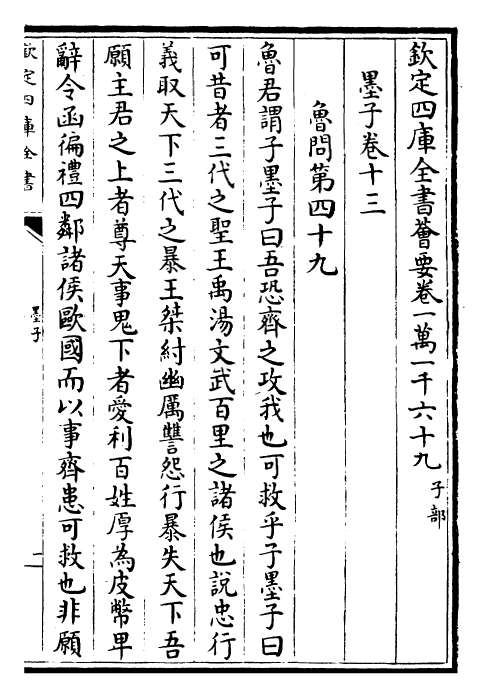 欽定四庫全書薈要卷一萬一千六十九子部
墨子卷十三
魯問第四十九
魯君謂子墨子曰吾恐齊之攻我也可救乎子墨子曰
可昔者三代之聖王禹湯文武百里之諸侯也說忠行
義取天下三代之暴王桀紂幽厲讐怨行暴失天下吾
願主君之上者尊天事鬼下者愛利百姓厚為皮幣卑
辭令亟徧禮四鄰諸侯歐國而以事齊患可救也非願
欽定四庫全書
墨子